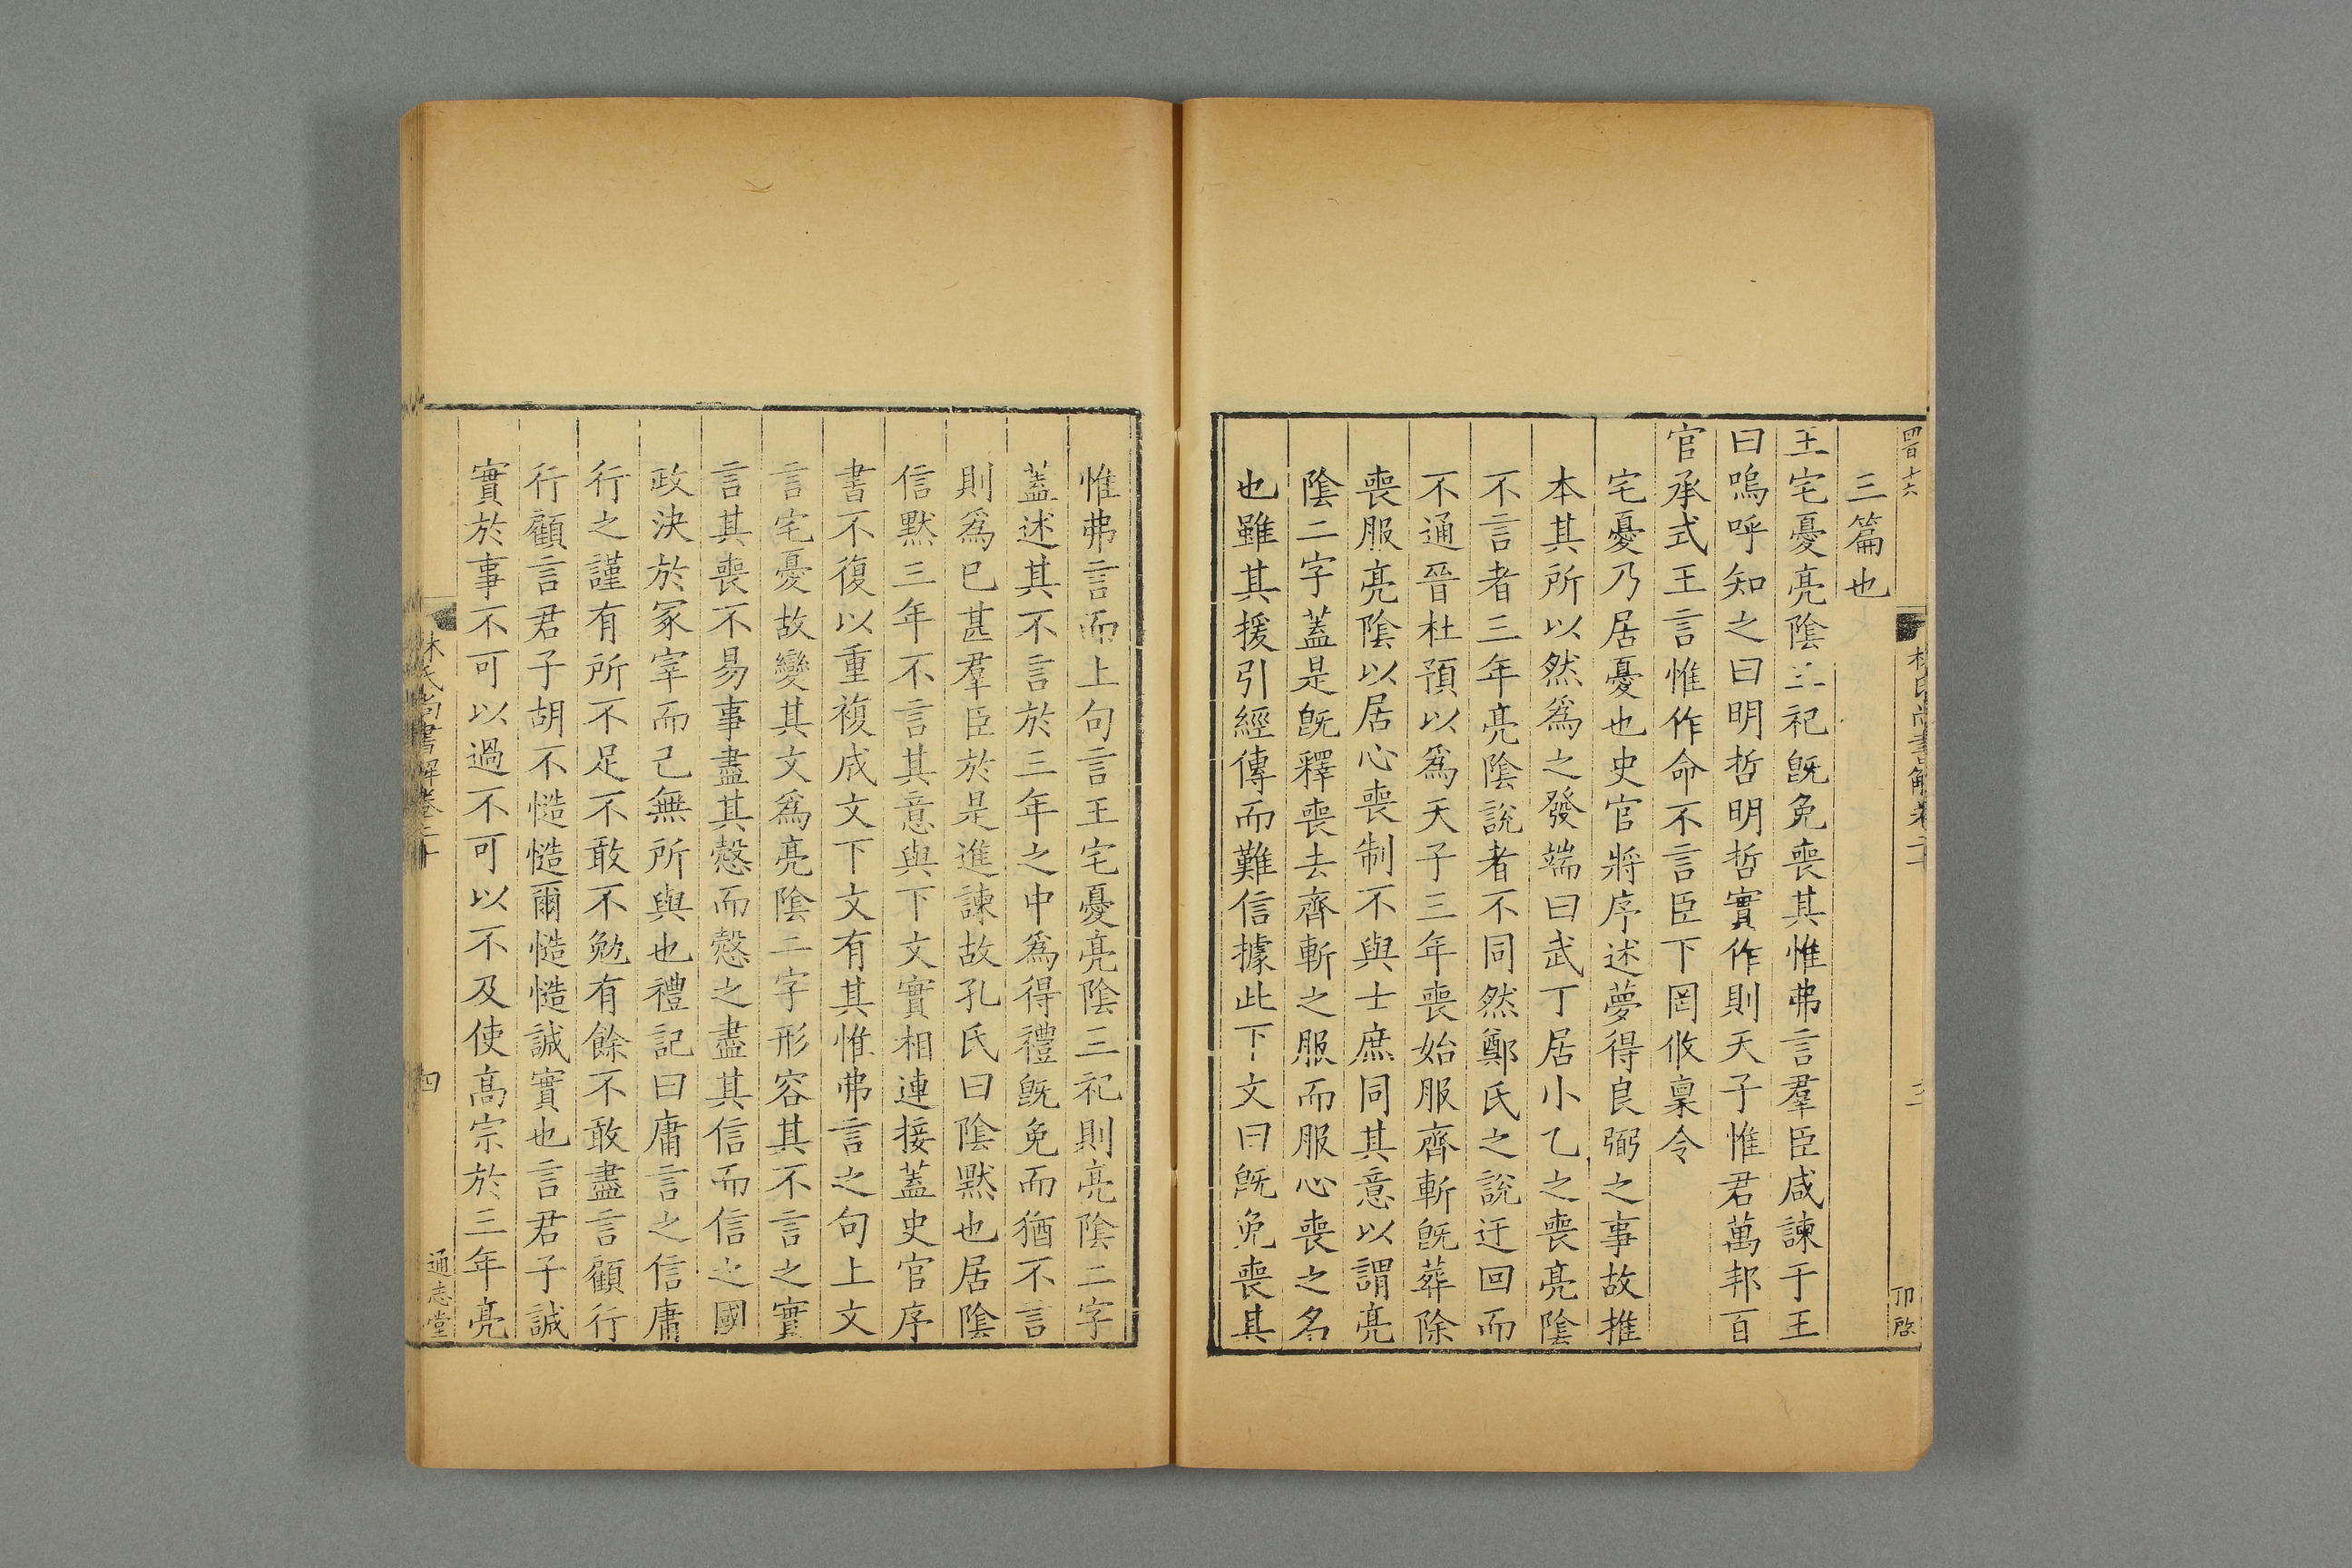 四百十六
林氏尚書解卷二十
三
卬啓
三篇也
王宅憂亮陰三祀旣免喪其惟弗言羣臣咸諫于王
曰嗚呼知之曰明哲明哲實作則天子惟君萬邦百
官承式王言惟作命不言臣下罔攸稟令
宅憂乃居憂也史官將序述夢得良弼之事故推
本其所以然爲之發端曰武丁居小乙之喪亮陰
不言者三年亮陰說者不同然鄭氏之說迂回而
不通晉杜預以爲天子三年喪始服齊斬旣葬除
喪服亮陰以居心喪制不與士庶同其意以謂亮
陰二字蓋是旣釋喪去齊斬之服而服心喪之名
也雖其援引經傳而難信據此下文曰旣免喪其
惟弗言而上句言王宅憂亮陰三祀則亮陰二字
蓋述其不言於三年之中爲得禮旣免而猶不言
則爲已甚羣臣於是進諫故孔氏曰陰默也居陰
信默三年不言其意與下文實相連接蓋史官序
書不復以重複成文下文有其惟弗言之句上文
言宅憂故變其文爲亮陰二字形容其不言之實
言其喪不易事盡其慤而慤之盡其信而信之國
政決於冢宰而己無所與也禮記曰庸言之信庸
行之謹有所不足不敢不勉有餘不敢盡言顧行
行顧言君子胡不慥慥爾慥慥誠實也言君子誠
實於事不可以過不可以不及使高宗於三年亮
林氏尚書解卷二十
四
通志堂